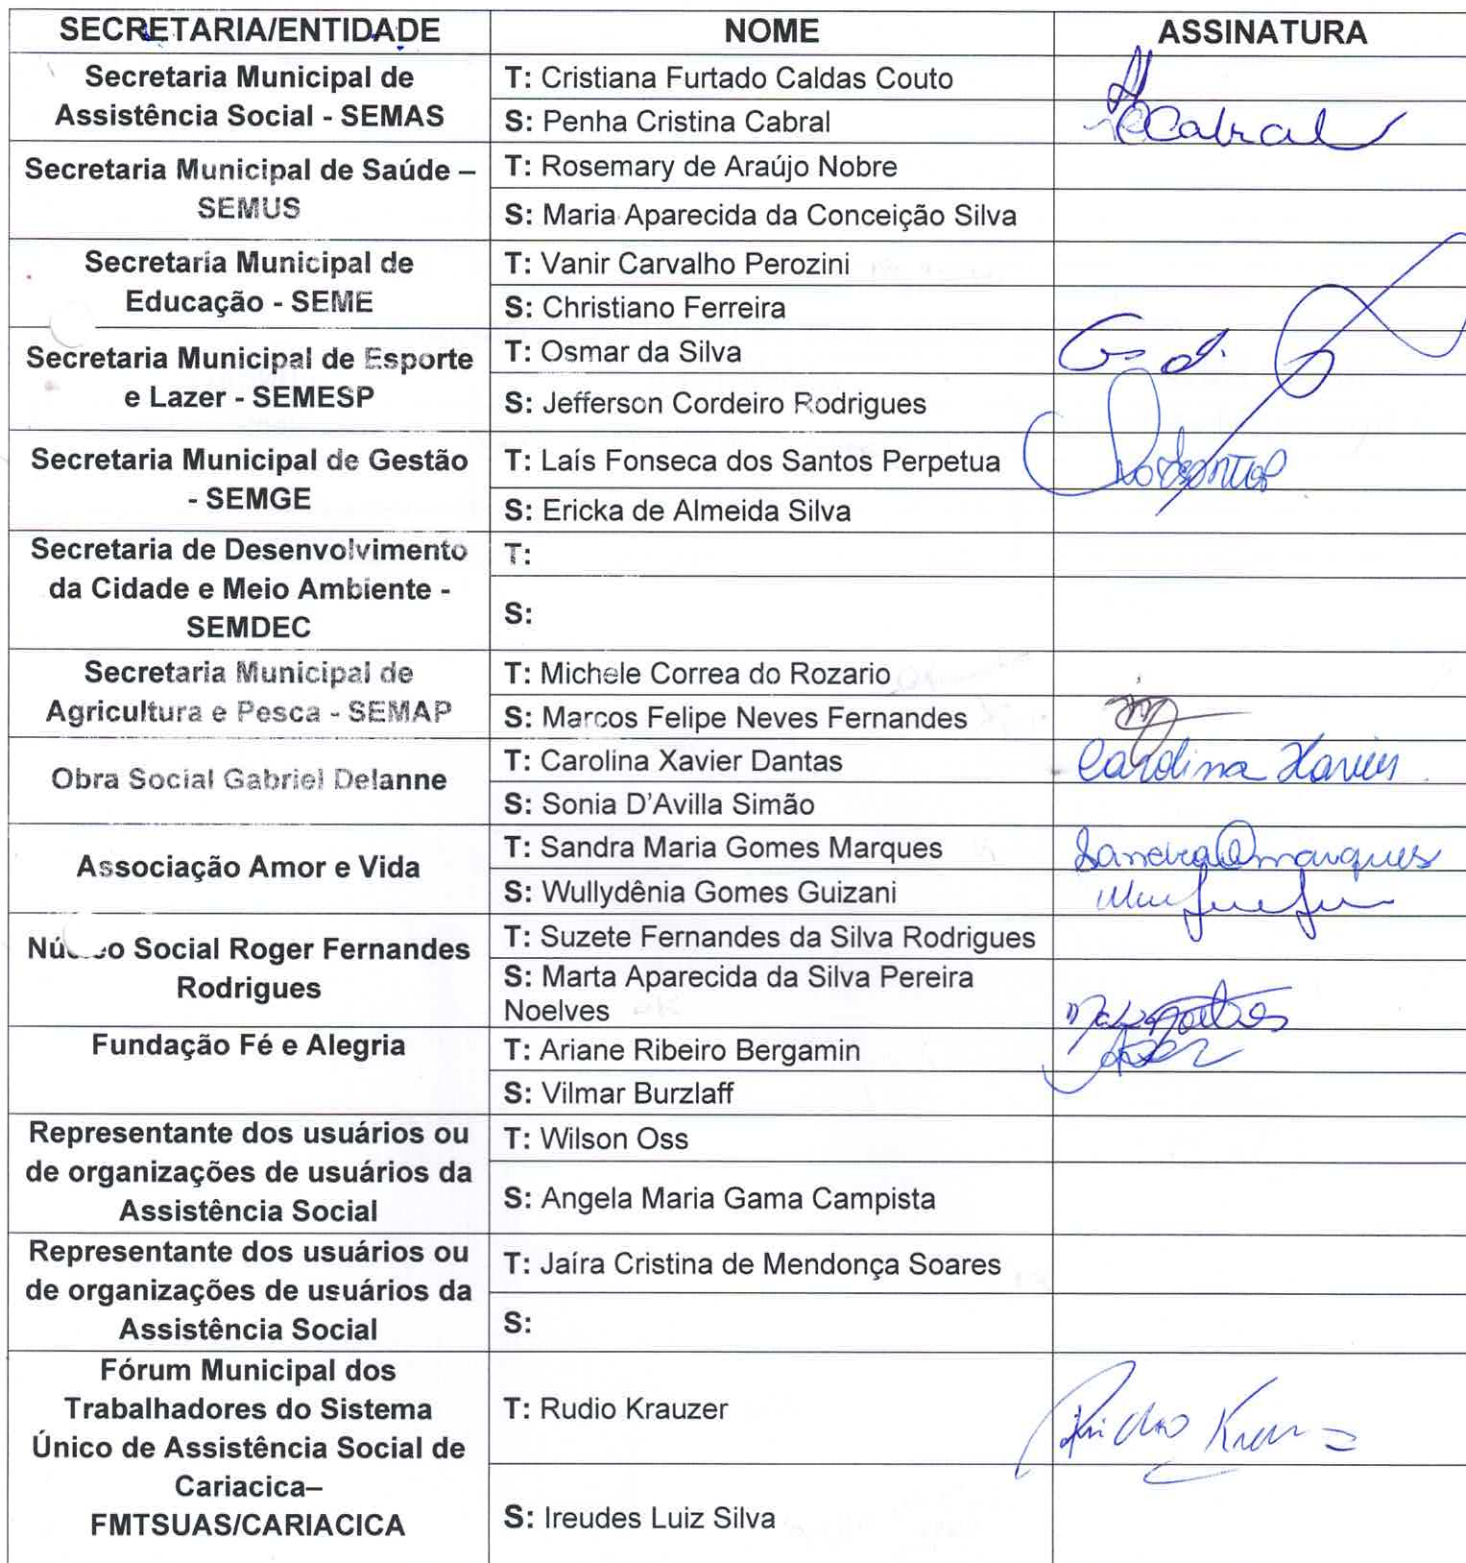 SECRETARIA/ENTIDADE NOME ASSINATURA
Secretaria Municipal de
Assistência Social - SEMAS
T: Cristiana Furtado Caldas Couto
S: Penha Cristina Cabral
Cabral
Secretaria Municipal de Saúde –
SEMUS
T: Rosemary de Araújo Nobre
S: Maria Aparecida da Conceição Silva
Secretaria Municipal de
Educação - SEME
T: Vanir Carvalho Perozini
S: Christiano Ferreira
Secretaria Municipal de Esporte
e Lazer - SEMESP
T: Osmar da Silva
S: Jefferson Cordeiro Rodrigues
Secretaria Municipal de Gestão
- SEMGE
T: Laís Fonseca dos Santos Perpetua
S: Ericka de Almeida Silva
Secretaria de Desenvolvimento
da Cidade e Meio Ambiente -
SEMDEC
T:
S:
Secretaria Municipal de
Agricultura e Pesca - SEMAP
T: Michele Correa do Rozario
S: Marcos Felipe Neves Fernandes
Obra Social Gabriel Delanne
T: Carolina Xavier Dantas
Carolina Xavier
S: Sonia D'Avilla Simão
Associação Amor e Vida
T: Sandra Maria Gomes Marques
Sandra Gmarques
S: Wullydênia Gomes Guizani
Social Roger Fernandes
Rodrigues
T: Suzete Fernandes da Silva Rodrigues
S: Marta Aparecida da Silva Pereira
Noelves
Fundação Fé e Alegria
T: Ariane Ribeiro Bergamin
S: Vilmar Burzlaff
Representante dos usuários ou
de organizações de usuários da
Assistência Social
T: Wilson Oss
S: Angela Maria Gama Campista
Representante dos usuários ou
de organizações de usuários da
Assistência Social
T: Jaíra Cristina de Mendonça Soares
S:
Fórum Municipal dos
Trabalhadores do Sistema
Único de Assistência Social de
Cariacica–
FMTSUAS/CARIACICA
T: Rudio Krauzer
Rudio
S: Ireudes Luiz Silva